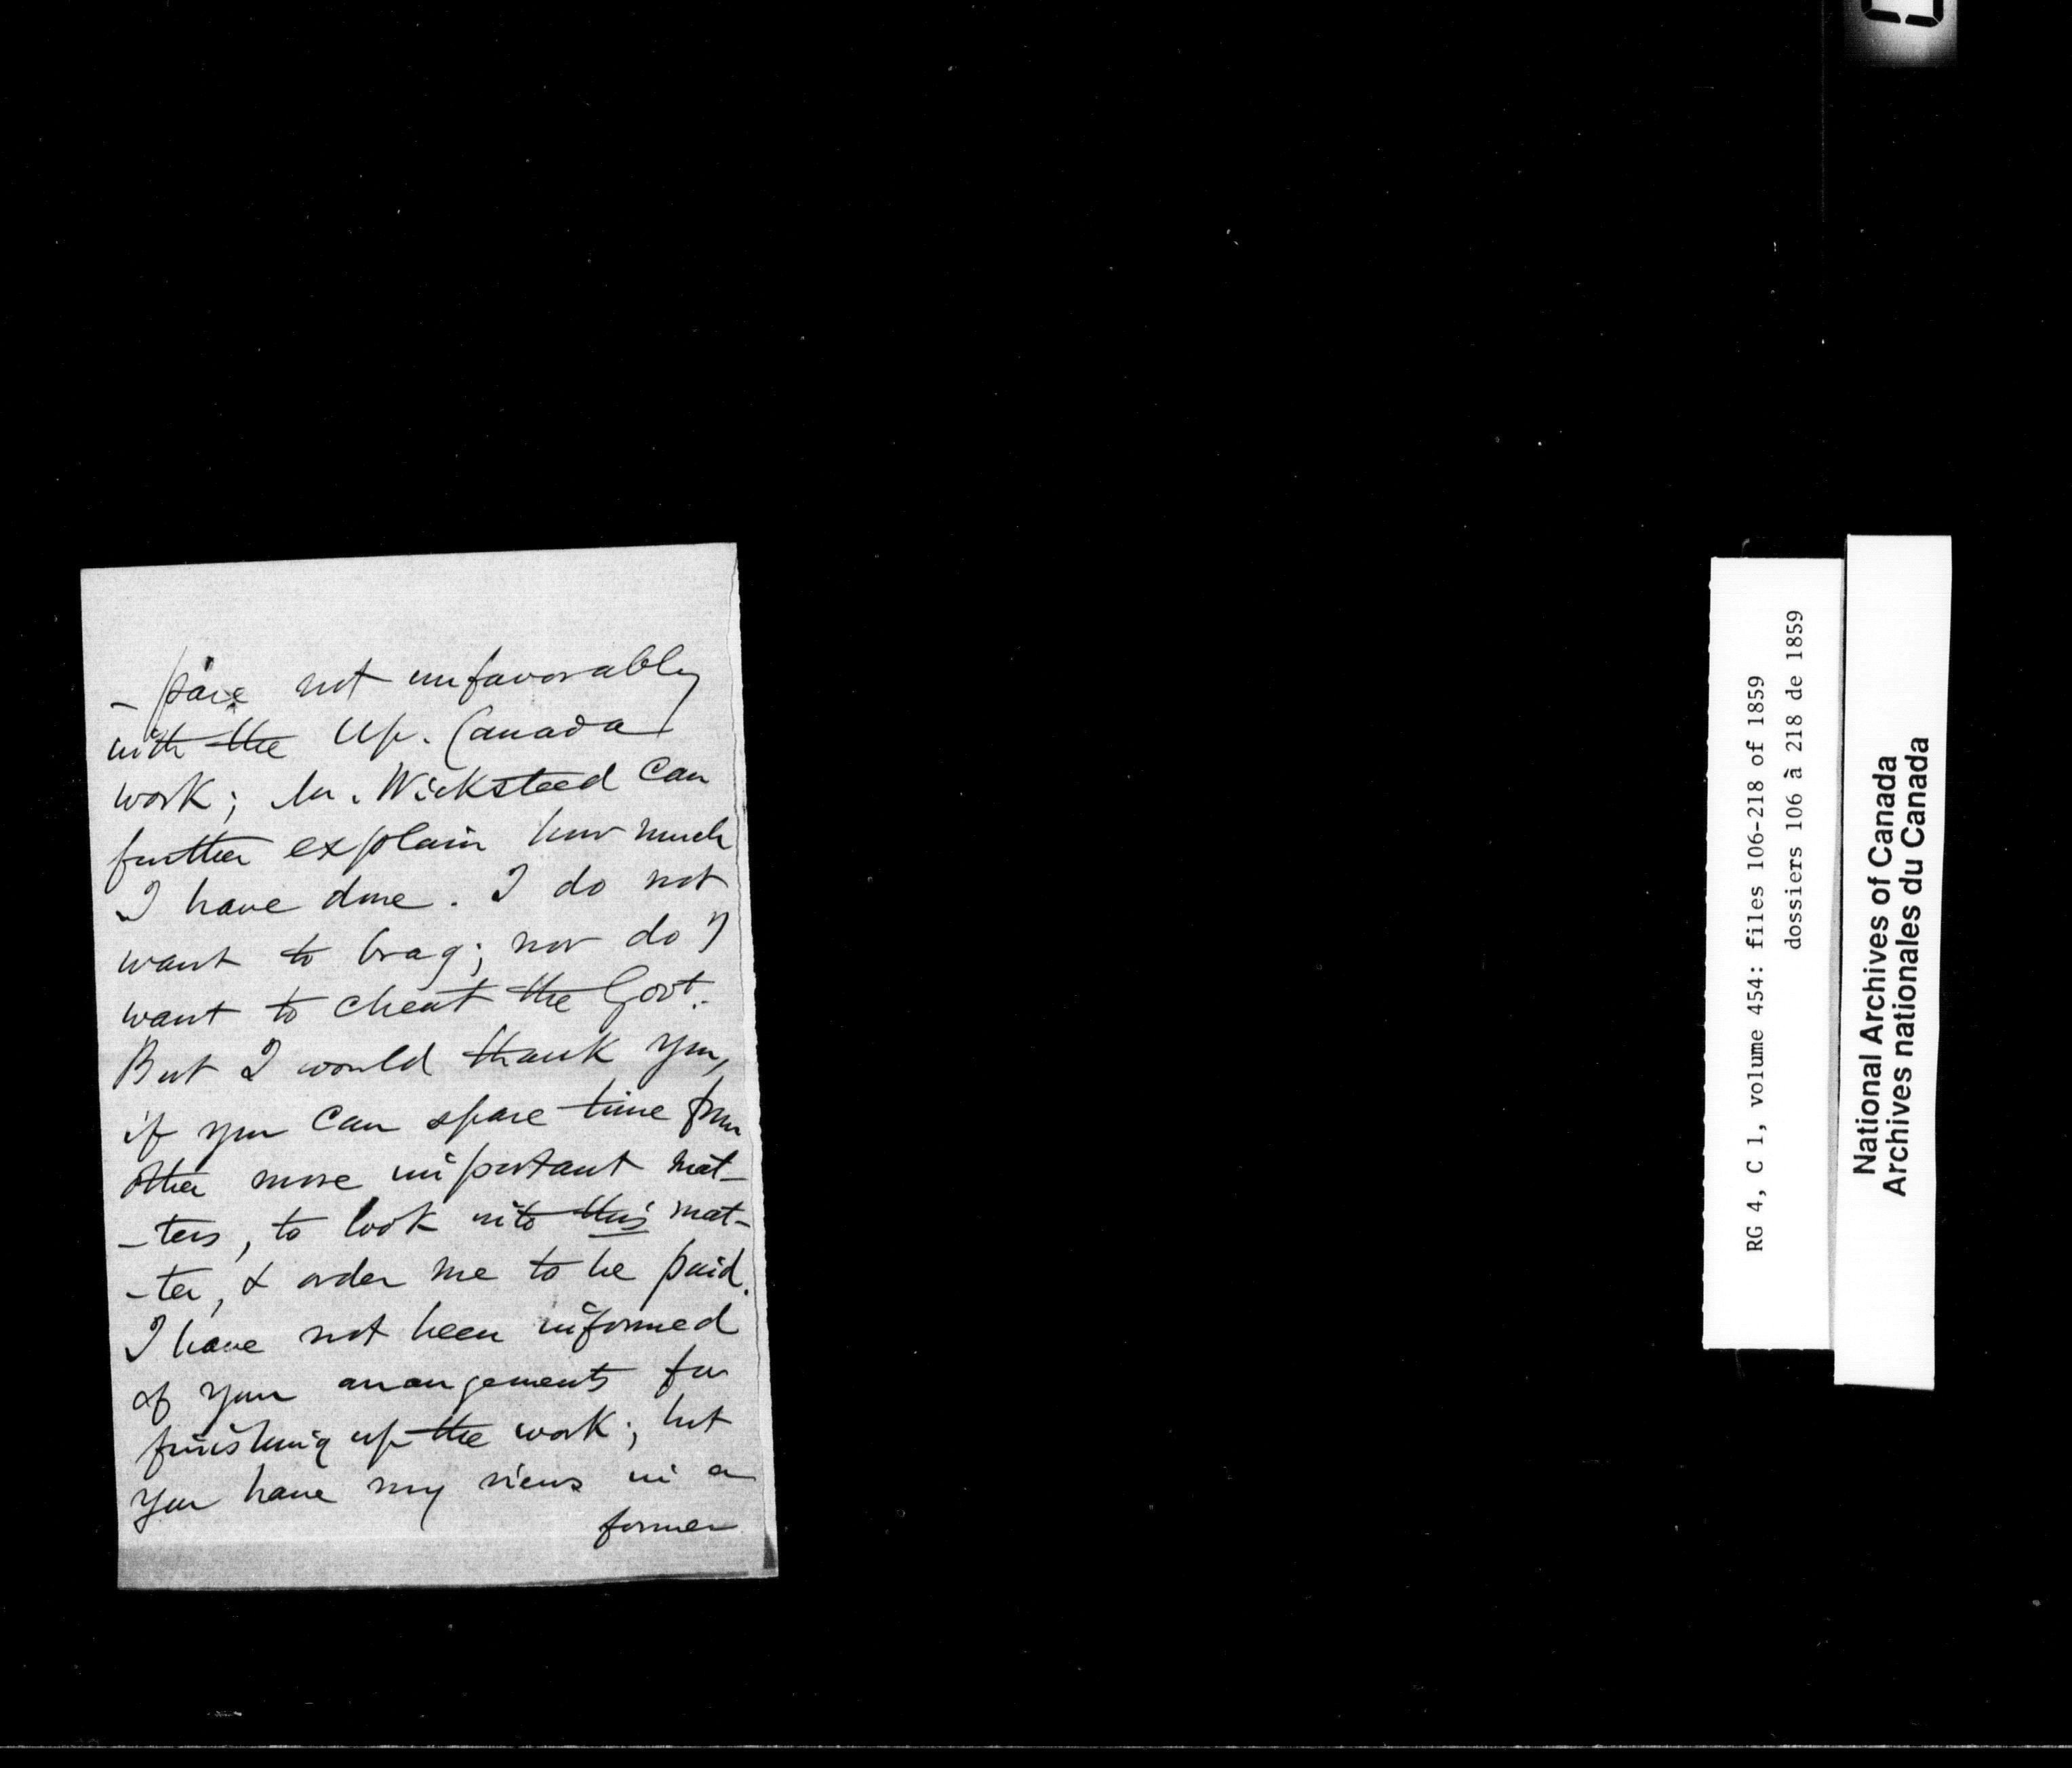 - pare not unfavorably
with the Up. Canada
work; Mr. Wicksteed can
further explain how much
I have done. I do not
want to brag; nor do I
want to cheat the Govt.
But I would thank you,
if you can spare time from
other more important mat-
-ters, to look into this mat-
-ter, & order me to be paid.
I have not been informed
of your arrangements for
finishing up the work; but
you have my views in a
former
RG 4, C 1, volume 454: files 106-218 of 1859
dossiers 106 à 218 de 1859
National Archives of Canada
Archives nationales du Canada